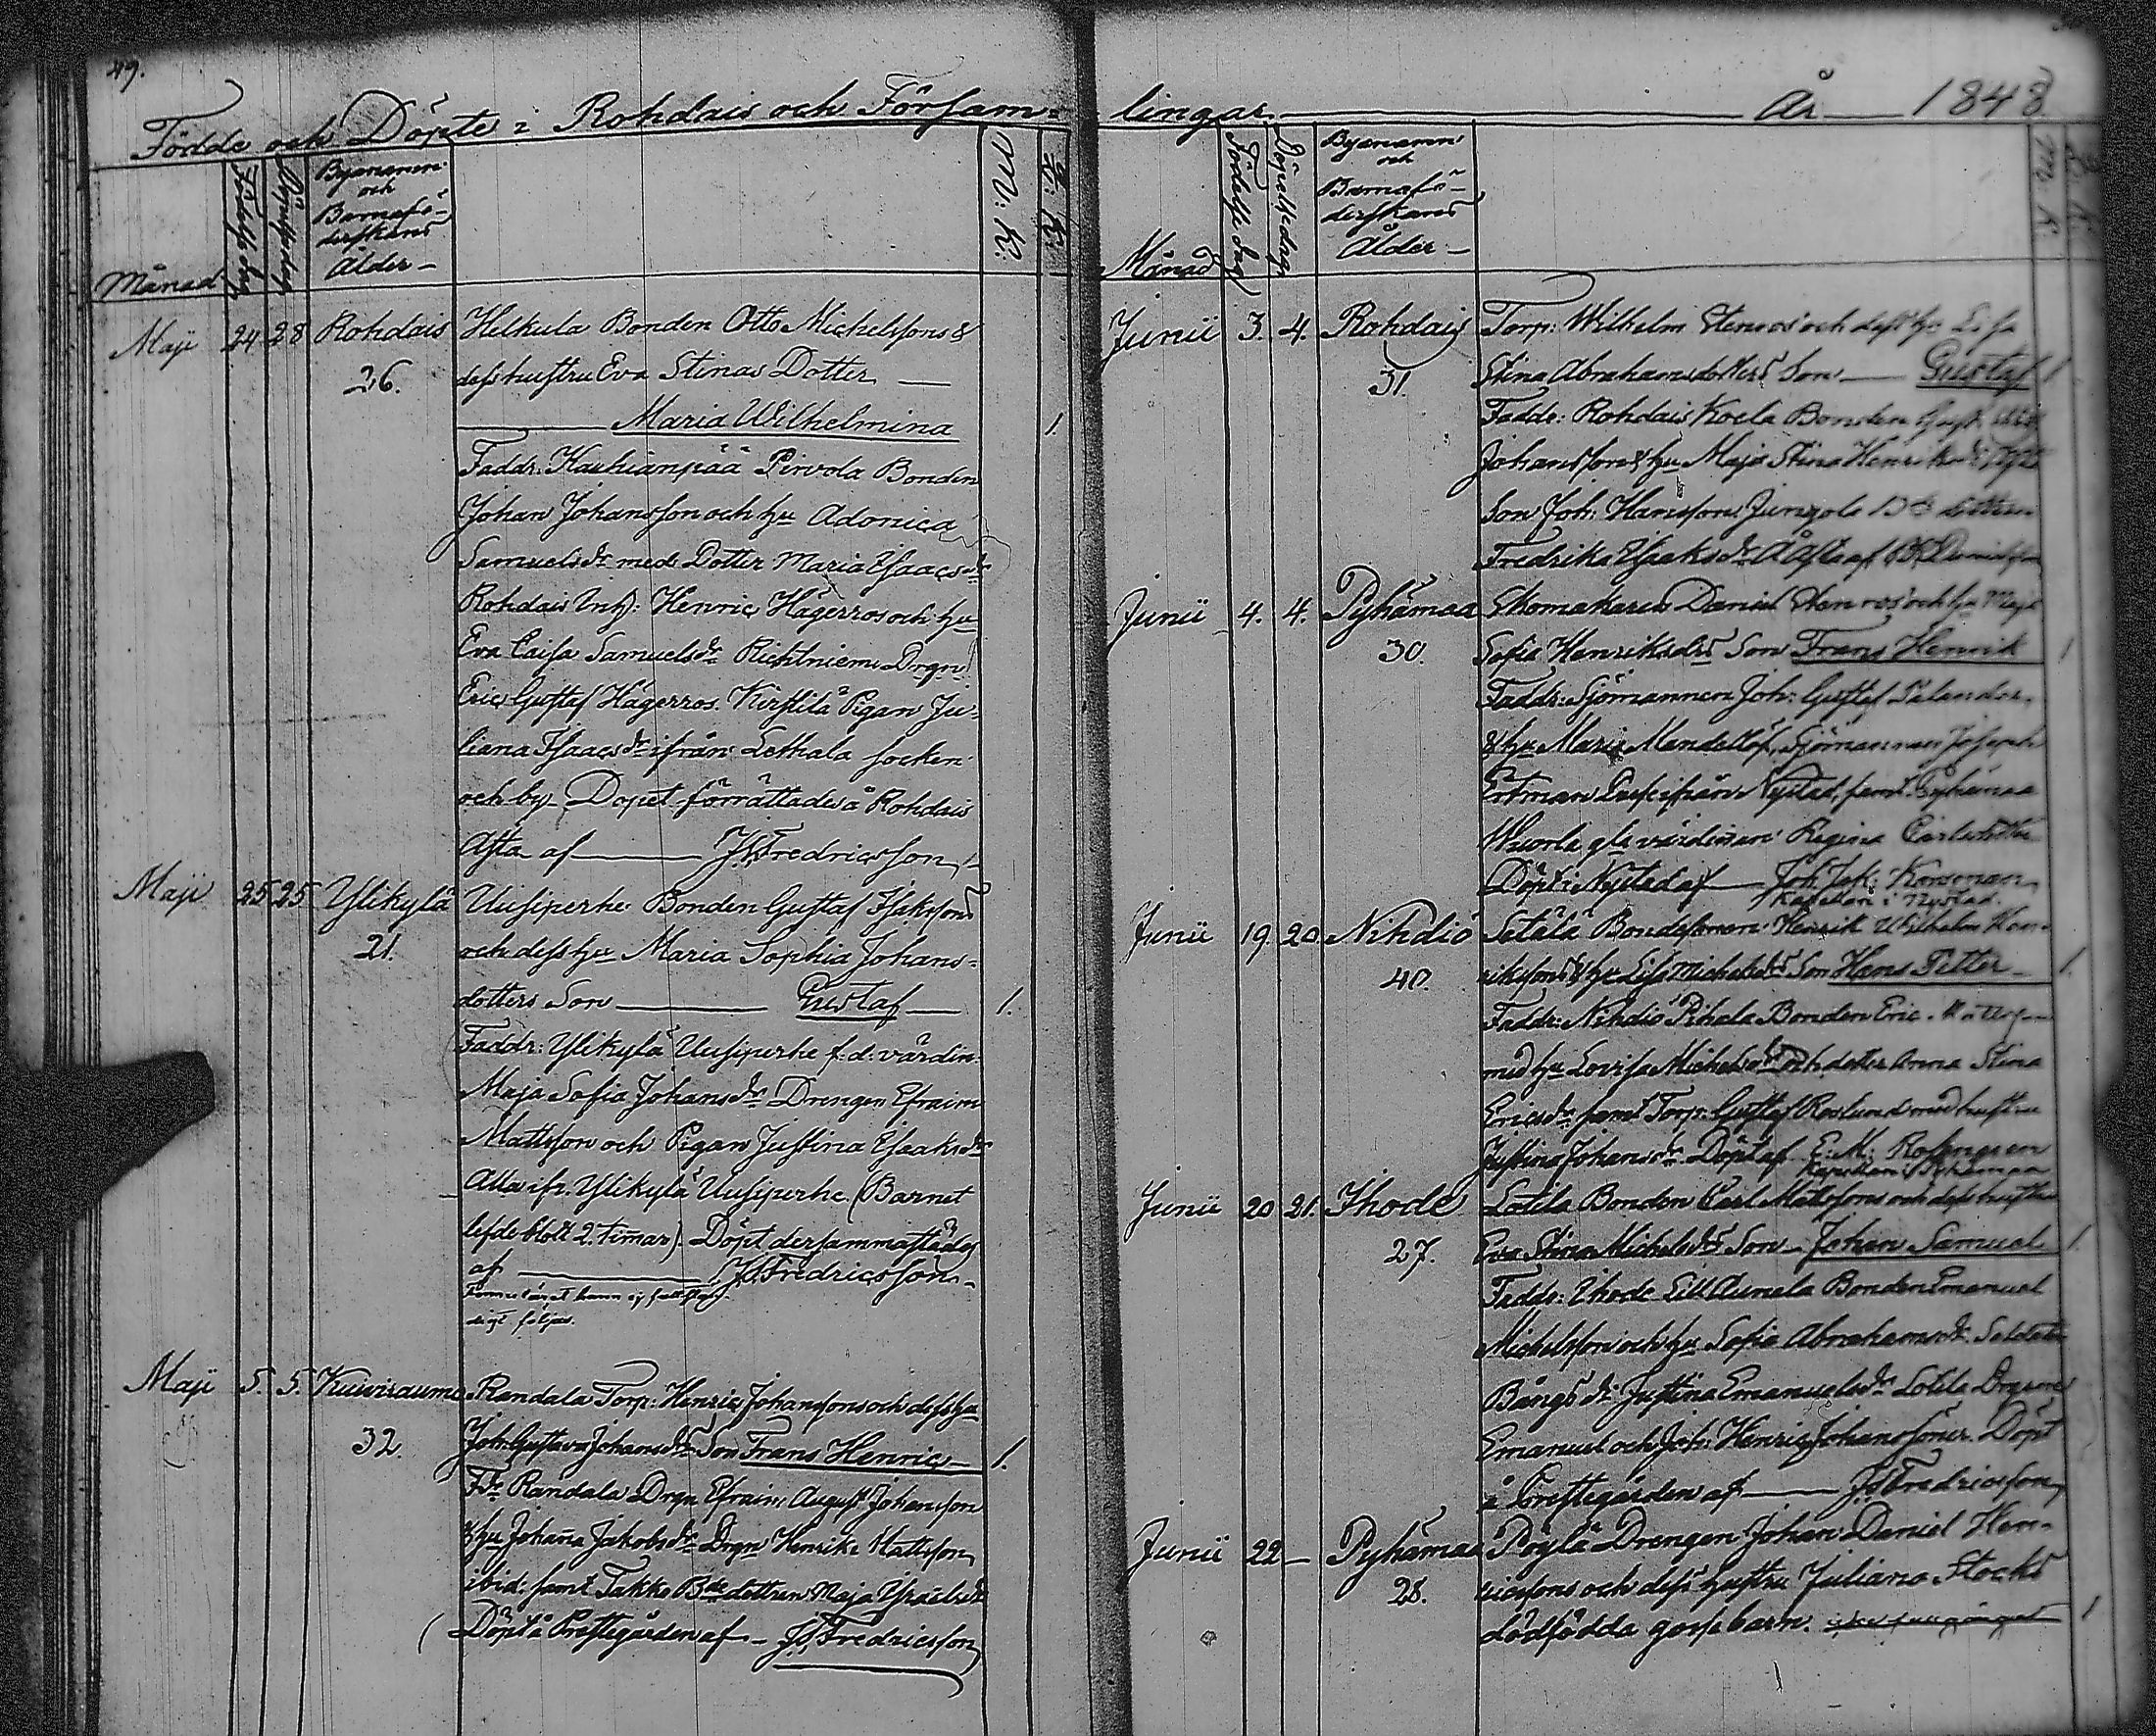 49.
Födde och Döpte i Rohdais och Försam=
Månad
Födelse dag
Döpelse dag
Bynamn och Barnafö-derskans Ålder -
M: K:
Q: K:
Maji 24 28 Rohdais Heikula Bonden Otto Michelssons &
26. dess hustru Eva Stinas Dotter
Maria Wilhelmina 1.
Faddr: Kauhianpää Pirvola Bonden
Johan Johansson och hu Adonica
Samuelsdr med Dotter Maria Isaacsdr
Rohdais Inh: Henric Hägerros och hu
Eva Caisa Samuelsdr Richtniemi Drgn
Eric Gustaf Hägerros. Kirstilä Pigan Ju-
liana Isaacsdr ifrån Lethala socken
och by. Dopet förrättades å Rohdais
Åsta af J. Fredricsson
Maji 25 25 Ylikylä Uusiperhe Bonden Gustaf Isakssons
21. och dess hu Maria Sophia Johans-
dotters Son Gustaf 1.
Faddr: Ylikylä Uusiperhe f. d. värdin:
Maja Sofia Johansdr Drengen Efraim
Mattsson och Pigan Justina Esaaksdr
Alla ifr. Ylikylä Uusiperhe. (Barnet
lefde blott 2. timmar). Döpt dersammastädes
af J. Fredricsson
Maji 5. 5. Kuivirauma Randala Torp: Henric Johanssons och dess hu
32. Joh: Gustava Johansdrs Son Frans Henric 1.
Fdr Randala Drgn Efraim August Johansson
& hu Johanna Jakobsdr Drgn Henrik Mattsson
ibid: samt Takko Bde dottren Maja Israelsdr
Döpt å Prestegården af - J. Fredricsson
lingar År 1848
Månad
Födelse dag
Döpelse dag
Bynamn och Barnafö-derskans Ålder -
M K
Q K
Junii 3. 4. Rohdais Torp: Wilhelm Stenros och dess hu Lisa
31. Stina Abrahamsdotters Son Gustaf 1
Faddr: Rohdais Koela Bonden Gust.
Johansson & hu Maja Stina Henriksdr
Son Joh: Hansson, Jungola Bds dottren
Fredrika Esaksdr
Junii 4. 4. Pyhämaa Skomakaren Daniel Stenros och hu Maja
30. Sofia Henriksdrs Son Frans Henrik 1
Faddr: Sjömannen Joh: Gustaf Salander
& hu Maria Mendellöf, Sjömannen Joseph
Ertman ifrån Nystad, samt Pyhämaa
Wuorla gla värdinnan Regina Carlsdotter
Döpt i Nystad af Joh. Jak: Korsman
Kapellan i Nystad.
Junii 19. 20. Nihdiö Setälä Bondesonen Henrik Wilhelm Hen-
40. rikssons & hu Lisa Michelsdrs Son Hans Petter 1.
Faddr: Nihdiö Pihala Bonden Eric Mattsson
med hu Lovisa Michelsdr och dotter Anna Stina
Ericsdr samt Torp: Gustaf Roslund med hustru
Justina Johansdr Döpt af E. M. Rosengren
Kapellan i Pyhämaa
Junii 20 21. Ihode Lotila Bonden Carl Mattssons och dess hustru
27. Eva Stina Michelsdrs Son Johan Samuel 1.
Faddr: Ihode Lill Aunela Bonden Emanuel
Michelsson och hu Sofia Abrahamsdr Soldaten
Bångs dr Justina Emanuelsdr Lotila Drgrne
Emanuel och Joh: Henric Johanssöner. Döpt
å Prestegården af J. Fredricsson
Junii 22 - Pyhämaa Pöylä Drengen Johan Daniel Hen-
28. ricssons och dess hustru Juliana Stocks
dödfödda gossebarn. 1